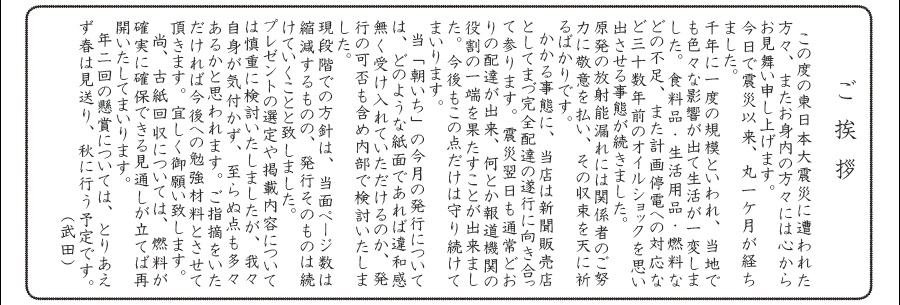 ご挨拶
この度の東日本大震災に遭われた
方々、またお身内の方々には心から
お見舞い申し上げます。
今日で震災以来、丸一ケ月が経ち
ました。
千年に一度の規模といわれ、当地で
も色々な影響が出て生活が一変しま
した。食料品・生活用品・燃料な
どの不足、また計画停電への対応な
ど三十数年前のオイルショックを思い
出させる事態が続きました。
原発の放射能漏れには関係者のご努
力に敬意を払い、その収束を天に祈
るばかりです。
かかる事態に、当店は新聞販売店
としてまづ完全配達の遂行に向き合っ
て参ります。震災翌日も通常どお
りの配達が出来、何とか報道機関の
役割の一端を果たすことが出来まし
た。今後もこの点だけは守り続けて
まいります。
当「朝いち」の今月の発行について
は、どのような紙面であれば違和感
無く受け入れていただけるのか、発
行の可否も含め内部で検討いたしま
した。
現段階での方針は、当面ページ数は
縮減するものの、発行そのものは続
けていくことと致しました。
プレゼントの選定や掲載内容について
は慎重に検討いたしましたが、我々
自身が気付かず、至らぬ点も多々
あるかと思われます。ご指摘をいた
だければ今後への勉強材料とさせて
頂きます。宜しく御願い致します。
尚、古紙回収については、燃料が
確実に確保できる見通しが立てば再
開いたしてまいります。
年二回の懸賞については、とりあえ
ず春は見送り、秋に行う予定です。
（武田）